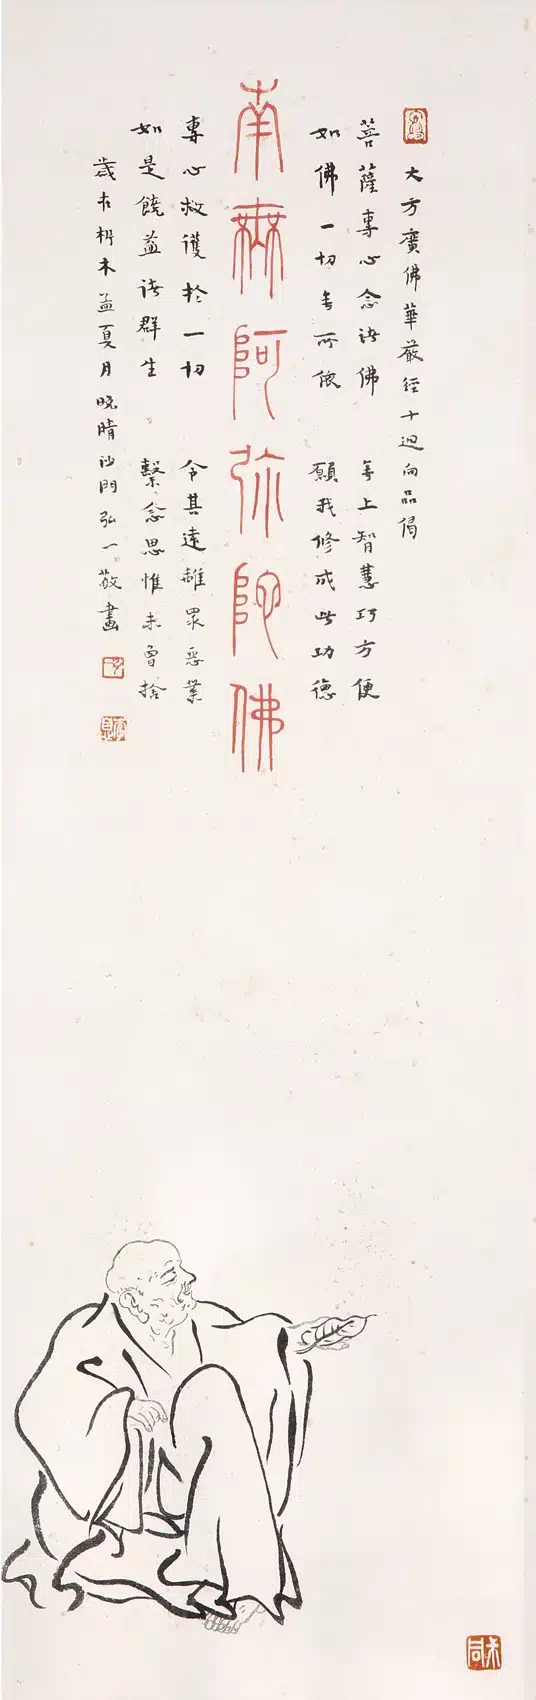 大方廣佛華嚴經十迴向品偈
菩薩專心念諸佛 無上智慧巧方便
如佛一切無所依 願我修成此功德
南無阿弥陀佛
專心救護於一切 令其遠離眾惡業
如是饒益諸群生 繫念思惟未曾捨
歲在析木孟夏月晚晴沙門弘一敬畫